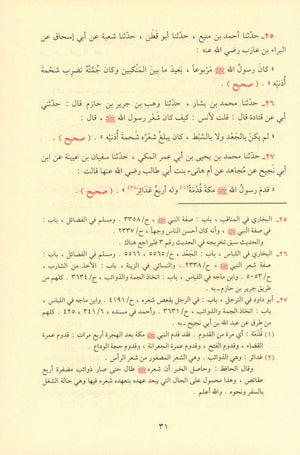 ٢٥ـ حدّثنا أحمد بن منيع ، حدّثنا أبو قَطَن ، حدّثنا شعبة عن أبي إسحاق عن
البراء بن عازب رضي الله عنه :
« كانَ رسولُ الله ﷺ مَرْبوعاً ، بَعيدَ ما بينَ المَنْكبين وكان جُمَّتُهُ تضرِب شَحْمةَ
أُذنَيْه » . ( صحيح ) .
٢٦ـ حدّثنا محمد بن بشار ، حدّثنا وهب بن جرير بن حازم قال : حدّثني
أبي عن قتادة قال : قلت لأنس : كيف كان شَعْر رسول الله ﷺ ، قال :
« لم يكنْ بالجَعْد ولا بالسَّبْط ، كان يبلغ شَعْرُه شحمةَ أُذنيْه » . ( صحيح ) .
٢٧ـ حدّثنا محمد بن يحيى بن أبي عمر المكي ، حدّثنا سفيان بن عيينة عن ابن
أبي نَجيح عن مُجاهد عن أم هانىء بنت أبي طالب رضي الله عنها قالت :
« قدمَ رسولُ الله ﷺ مكةَ قُدْمَةً(١) وله أربعُ غدائرَ(٢) » . ( صحيح ) .
٢٥ـ البخاري في المناقب ، باب : صفة النبي ﷺ ، ح/٣٣٥٨ . ومسلم في الفضائل ، باب :
في صفة النبي ﷺ ، وأنه كان أحسن الناس وجهاً ، ح/٢٣٣٧ .
والحديث سبق تخريجه في الحديث رقم ٣ فليراجع هناك .
٢٦ـ البخاري في اللباس ، باب : الجَعْد ، ح/٥٥٦٥ ، ٥٥٦٦ . ومسلم في الفضائل ، باب :
صفة شعر النبي ﷺ ، ح/٢٣٣٨ . والنسائي في الزينة ، باب : الأخذ من الشارب ،
ح/٥٠٥٣ . وابن ماجه في اللباس ، باب : اتخاذ الجمة والذوائب ، ح/٣٦٣٤ . كلهم من
طريق جرير بن حازم ـ به .
٢٧ـ أبو داود في الترجل ، باب : في الرجل يقعص شعره ، ح/٤١٩١ . وابن ماجه في اللباس ،
باب : اتخاذ الجمة والذوائب ، ح/٣٦٣١ . وأحمد في مسنده ، ٣٤١/٦ ، ٤٢٥ . كلهم
من طرق عن عبد الله بن أبي نجيح ـ به .
(١) قُدْمَة : أي مرة من القدوم . فقد قدم النبي ﷺ مكة بعد الهجرة أربع مرات : قدوم عمرة
القضاء ، وقدوم الفتح ، وقدوم عمرة الجعرانة ، وقدوم حجة الوداع .
(٢) غدائر : وهي الذوائب . وهي الشعر المضفور من شعر الرأس .
وقال الحافظ : وحاصل الخبر أن شعره ﷺ طال حتى صار ذوائب مضفرة أربع
عقائص ، وهذا محمول على الحال التي يبعد عهده بتعهده شعره فيها وهي حالة الشغل
بالسفر ونحوه . والله أعلم .
٣١